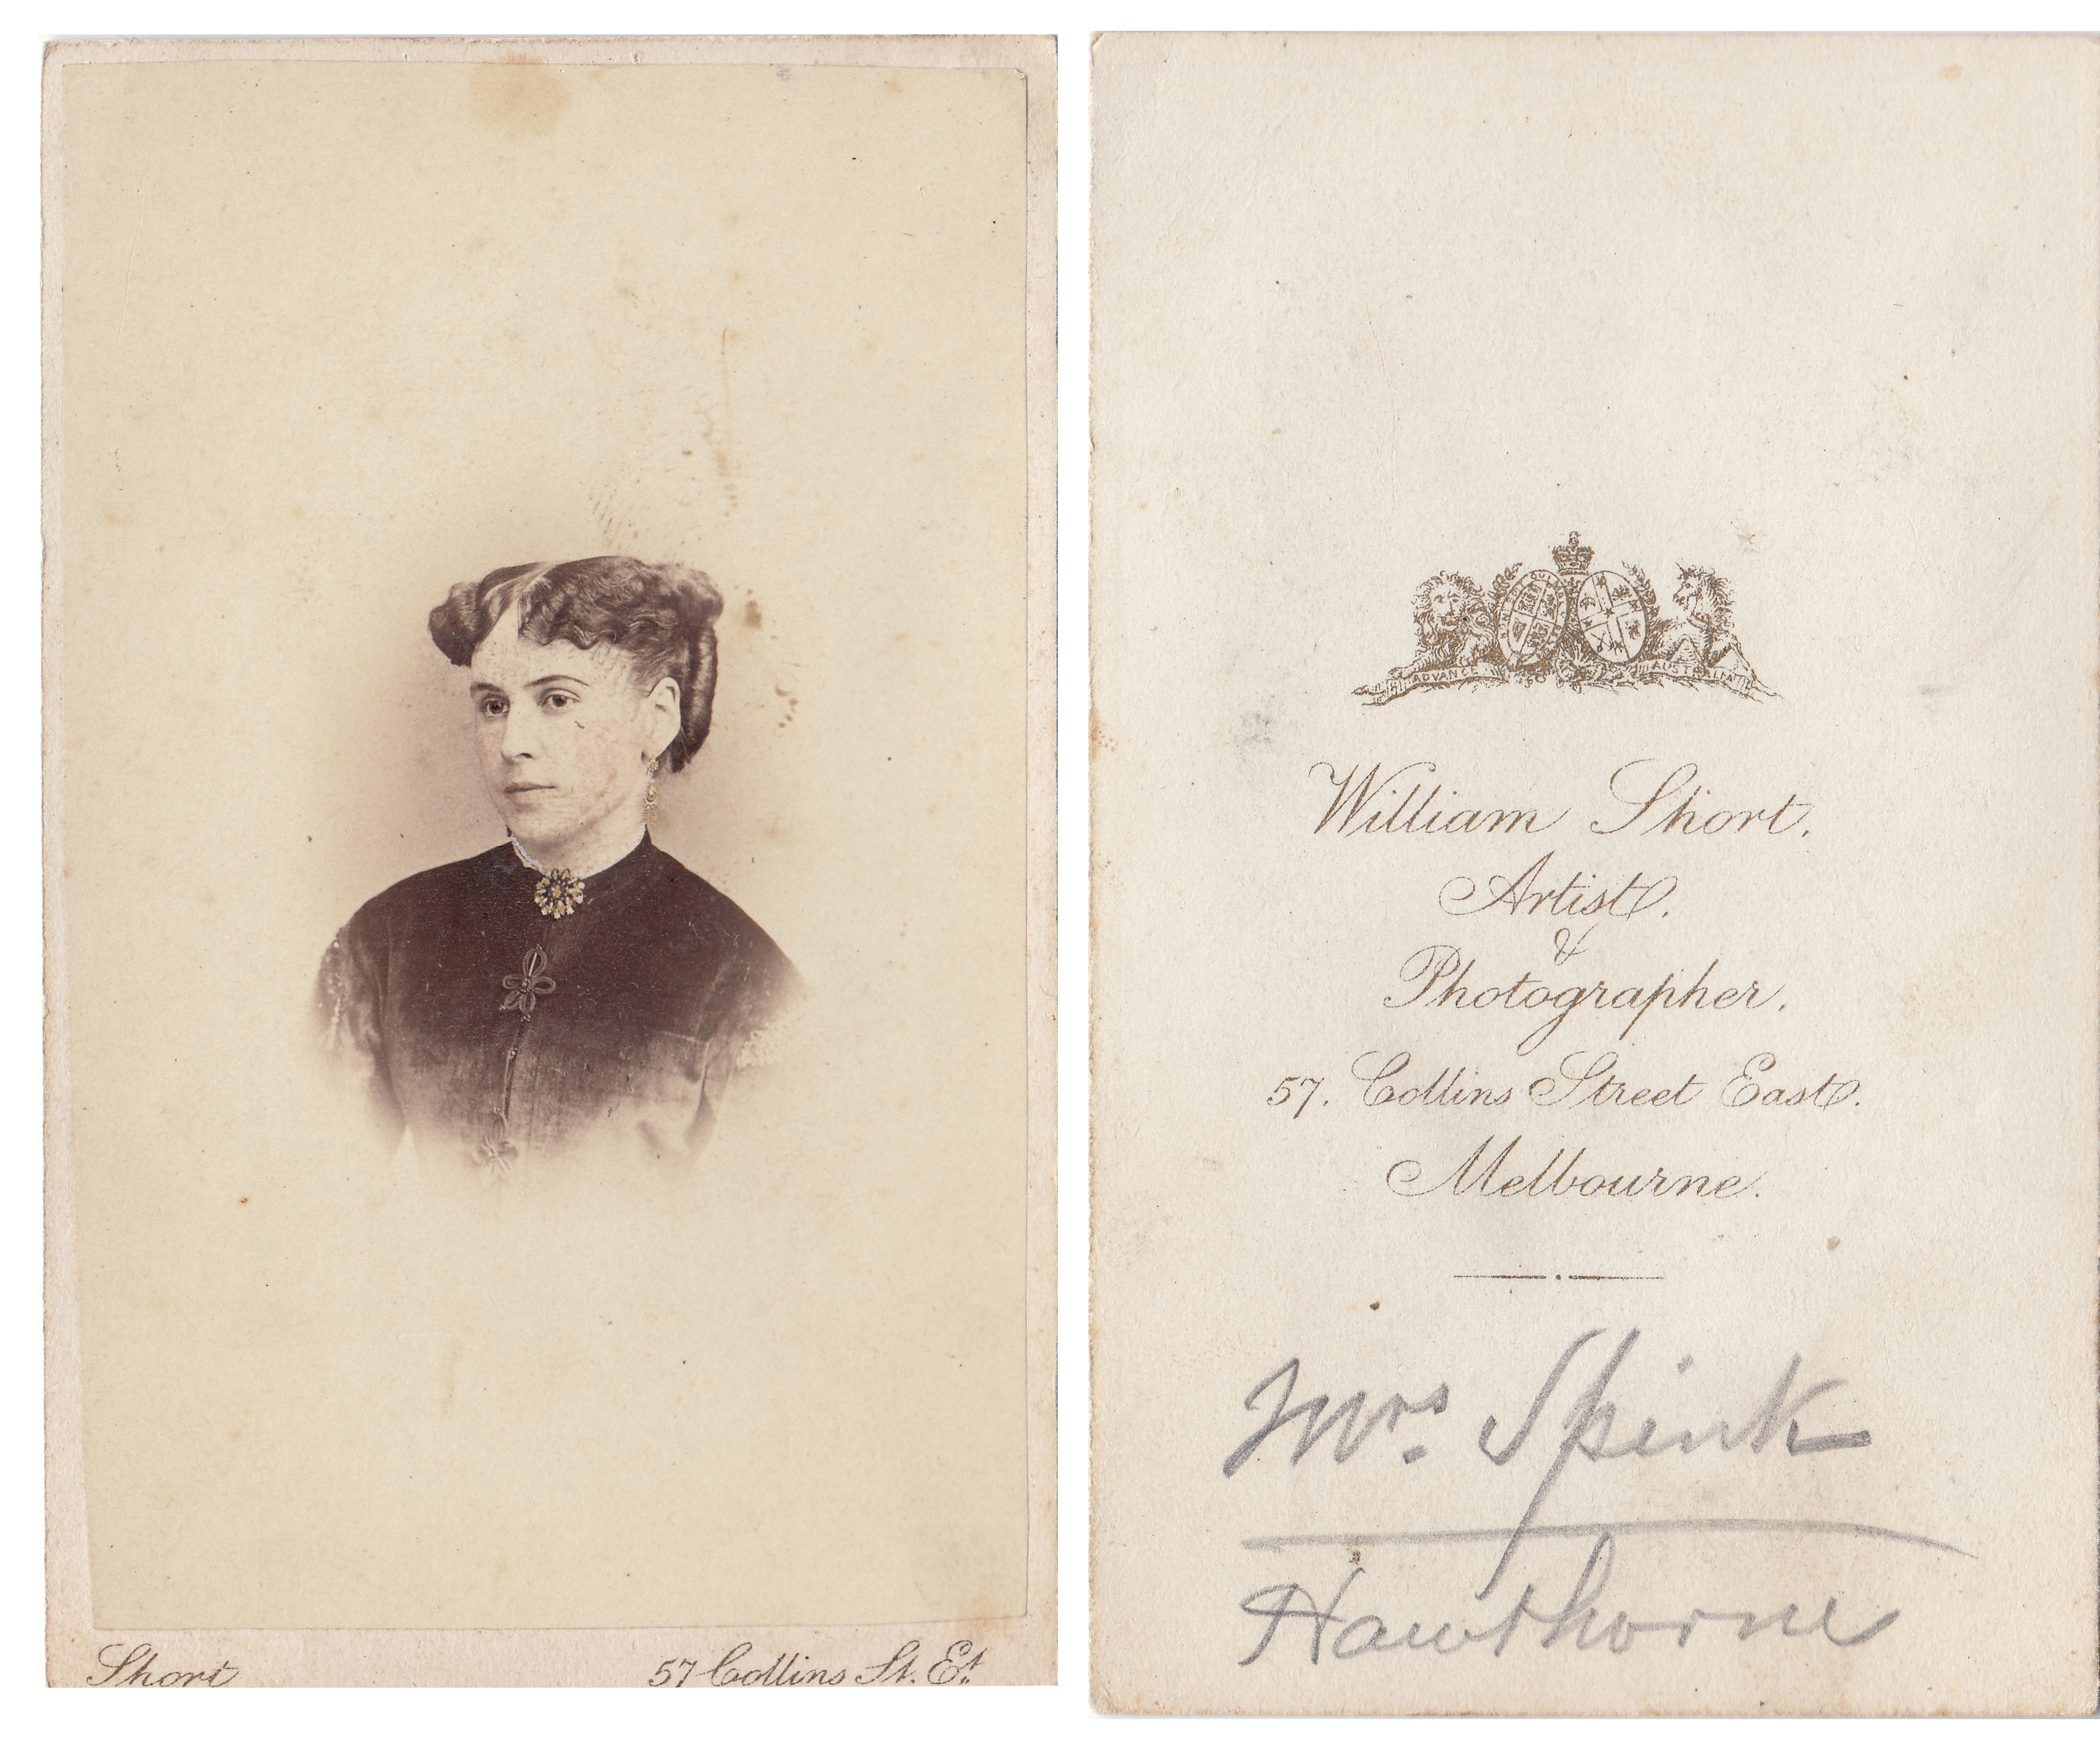 Short
57 Collins St. Et.
ADVANCE AUSTRALIA
William Short.
Artist.
&
Photographer.
57. Collins Street East.
Melbourne.
Mrs. Spink
Hawthorne